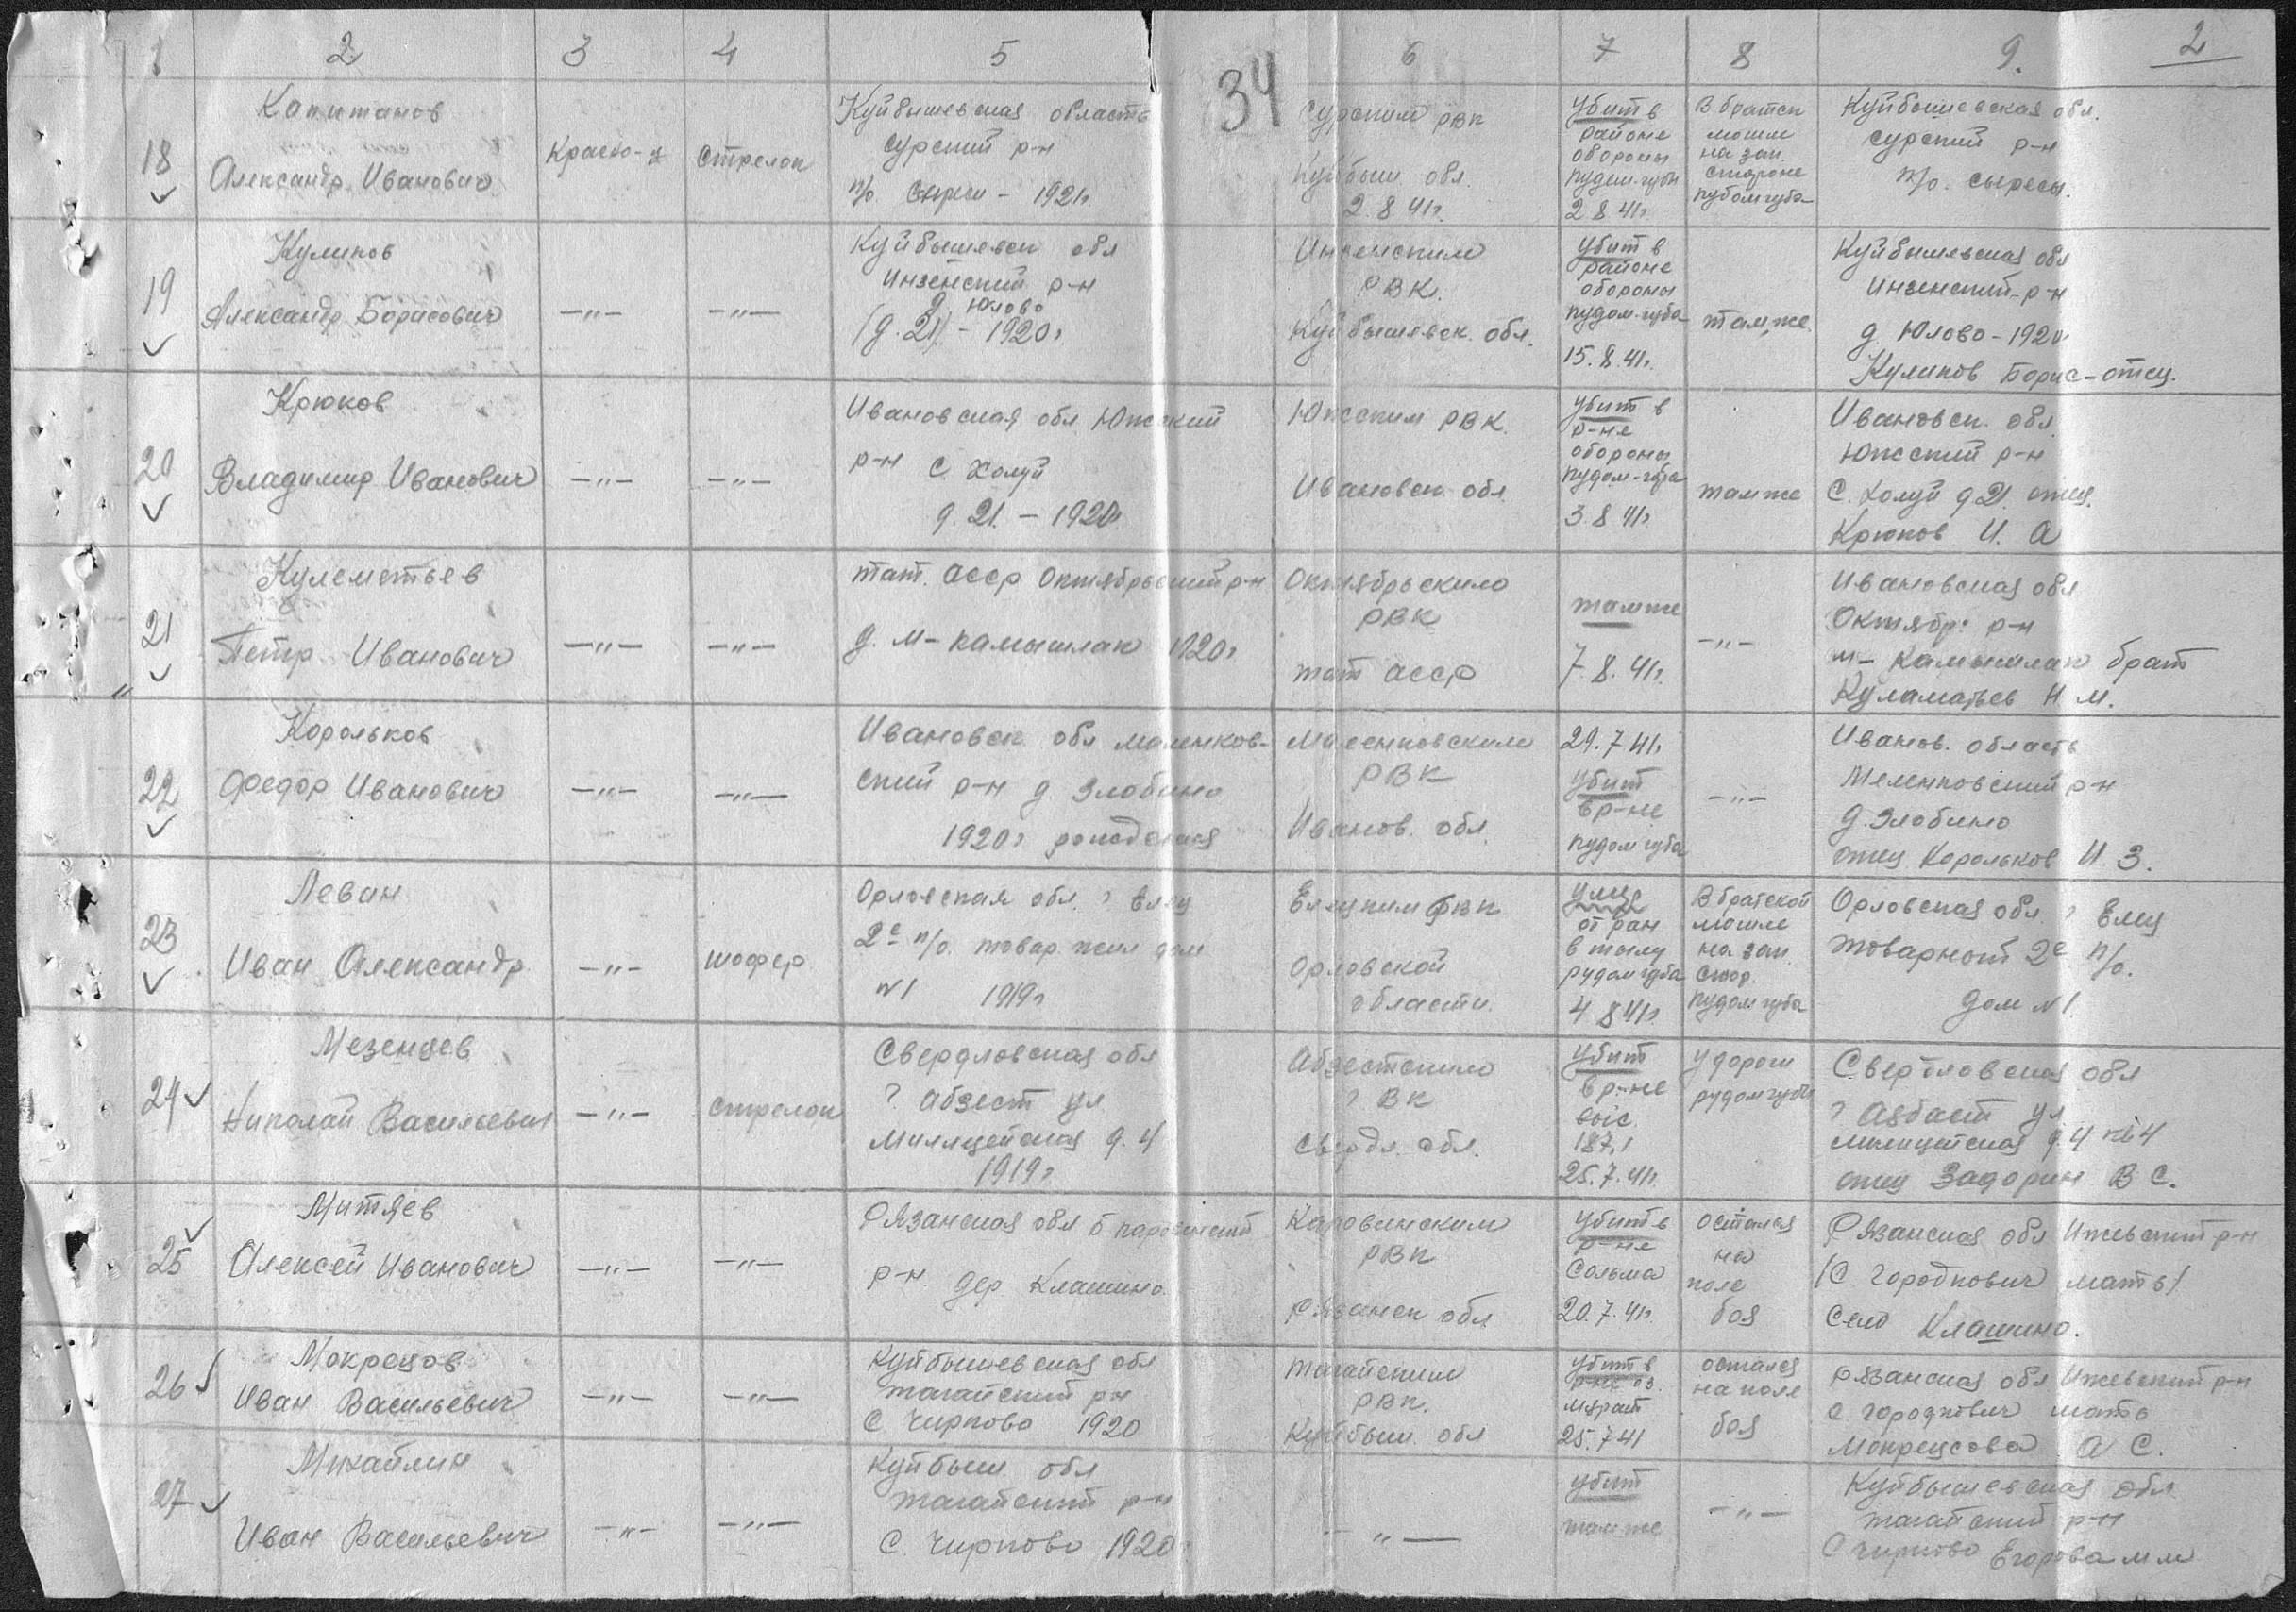 1 2 3 4 5 6 7 8 9. 2
34
18
Капитанов
Александр Иванович
Красно-ц
Стрелок
Куйбышевская область
Сурский р-н
п/о Сыреси - 1921г.
Сурским РВК
Куйбыш обл.
2.8 41г.
Убит в
районе
обороны
2 8 41г.
В братск
могиле
на зап.
стороне
Куйбышевская обл.
Сурский р-н
п/о. Сыресы.
19
Куликов
Александр Борисович
-"-
-"-
Куйбышевск обл
Инзенский р-н
д Юлово
(д. 21) - 1920г
Инзенским
РВК.
Куйбышевск. обл.
Убит в
районе
обороны
пудом-губа
15.8.41г.
там же.
Куйбышевская обл
Инзенский р-н
д Юлово - 1920г
Куликов Борис - отец.
20
Крюков
Владимир Иванович
-"-
-"-
Ивановская обл Южский
р-н С Холуй
д. 21. - 1920г
Южским РВК.
Ивановск обл
Убит в
р-не
обороны
пудом-губа
3.8 41г
там же
Ивановск. обл.
Южский р-н
С. Холуй д 21. отец.
Крюков И. А
21
Кулеметьев
Петр Иванович
-"-
-"-
тат. АССР Октябрьский р-н
д. М-Камышлак 1920г
Октябрьским
РВК
тат АССР
там же
7.8.41г.
-"-
Ивановская обл
Октябр. р-н
М-Камышлак брат
Куламатьев Н. М.
22
Корольков
Федор Иванович
-"-
-"-
Ивановск обл Меленков-
ский р-н д. Злобино
1920г рождения
Меленковским
РВК
Иванов. обл.
29.7 41г
убит
в р-не
пудом губа
-"-
Иванов. область
Меленковский р-н
д. Злобино
отец Корольков И З.
23
Леван
Иван Александр.
-"-
шофер
Орловская обл. г Елец
2е п/о. товар. жил дом
№1 1919г
Елецким ГВК
Орловской
области.
умер
от ран
в тылу
рудом губа
4 8 41г.
В братской
могиле
на зап.
стор.
пудом губа
Орловская обл. г Елец
товарной 2е п/о.
дом №1.
24
Мезенцев
Николай Васильевич
-"-
стрелок
Свердловская обл
г Абзест ул
Милицейская д. 4
1919г
Абзестским
г ВК
Свердл. обл.
Убит
в р-не
выс.
187,1
25.7.41г.
у дороги
рудом губы
Свердловская обл
г Азбест ул
Милицейская д. 4 кв 4
отец Задорин В С.
25
Митяев
Алексей Иванович
-"-
-"-
Рязанская обл
р-н. дер Клашино
РВК
Рязанск обл
Убит в
р-не
Сальма
20.7.41г.
остался
на
поле
боя
Рязанская обл Ижевский р-н
(С Городкович мать)
Село Клашино.
26
Мокрецов
Иван Васильевич
-"-
-"-
Куйбышевская обл
Тагайский рн
С Чирково 1920
Тагайским
РВК.
Куйбыш. обл
Убит в
р-не оз.
25.7 41
остался
на поле
боя
Рязанская обл Ижевский р-н
с Городкович мать
Мокрецова А С.
27
Михайлин
Иван Васильевич
-"-
-"-
Куйбыш обл
Тагайский р-н
С. Чирково 1920
-"-
убит
там же
-"-
Куйбышевская обл
Тагайский р-н
С Чирково Егорова м м